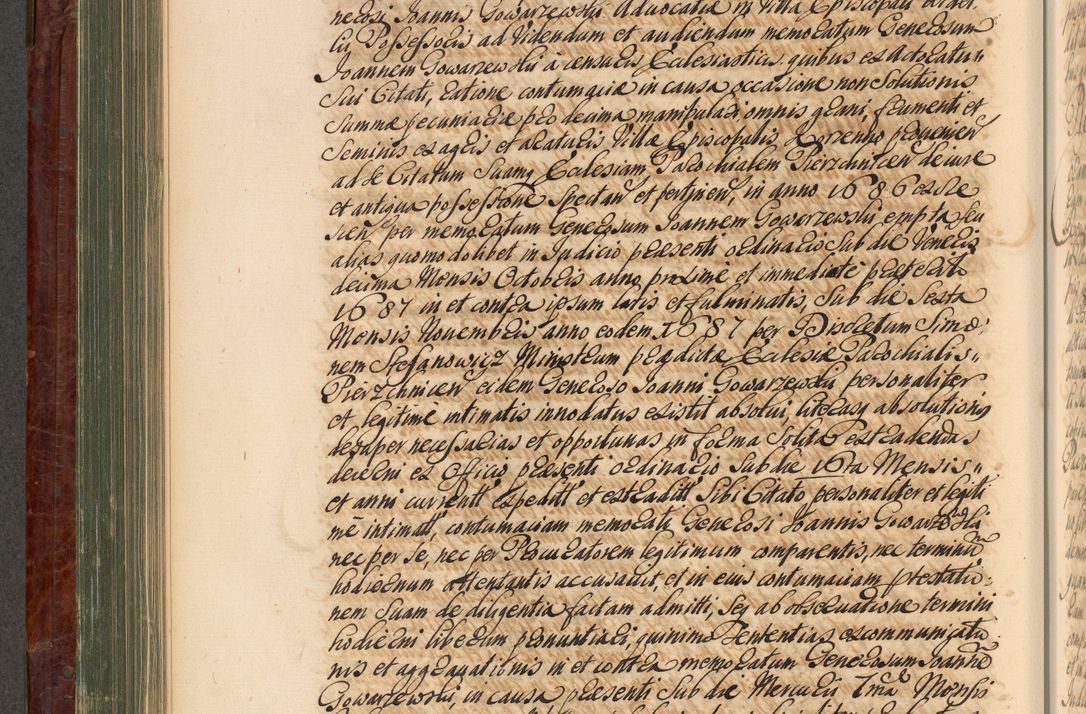 nerosi Joannis Gowarzewskii Advocatia in Villa Episcopali
lij Possessoris ad Videndum et audiendum memoratum Generosum
Joannem Gowarzewskii à censuris Ecclesiasticis, quibus ex Actoratu„
Sui Citati, ratione contumaciæ in causa occasione non Solutionis
Summæ pecuniariæ pro decima manipulari omnis grani, frumenti et
Seminis ex agris et areaturis Villæ Episcopalis provenien
ad se Citatum Suamq Ecclesiam Parochialem Pierzchnicen de iure
et antiqua possessione Spectan et pertinen, in anno 1686
per memoratum Generosum Joannem Gowarzewskii empta seu
alias quomodolibet in Judicio præsenti ordinario Sub die Veneris
decima Mensis Octobris anno proxime et immediate præterito
1687 in et contra ipsum latis et fulminatis, Sub die Sexta
Mensis Novembris anno eodem 1687 per Discretum Simo:
nem Stefanowicz Ministrum prædictæ Ecclesiæ Parochialis„
Pierzchnicen eidem Generoso Joanni Gowarzewskii personaliter
et legitime intimatis innodatus existit absolvi, literasq absolutionis
desuper necessarias et opportunas in forma Solita extradendas
decerni ex Officio præsenti ordinario Sub die 16ta Mensis„
et anni currentt expeditt et extraditt Sibi Citato personaliter et legiti
me intimatt, contumaciam memorati Generosi Joannis Gowarzewskii
nec per Se, nec per Procuratorem legitimum comparentis, nec terminum
hodiernum attentantis accusavit, et in eius contumaciam protestatio:
nem Suam de diligentia factam admitti, Seq ab observatione termini
hodierni liberum pronuntiari, quinimo Sententias excommunicatio
nis et aggravationis in et contra memoratum Generosum Joannem
Gowarzewskii, in causa præsenti Sub die Mercurii 7ma Mensis